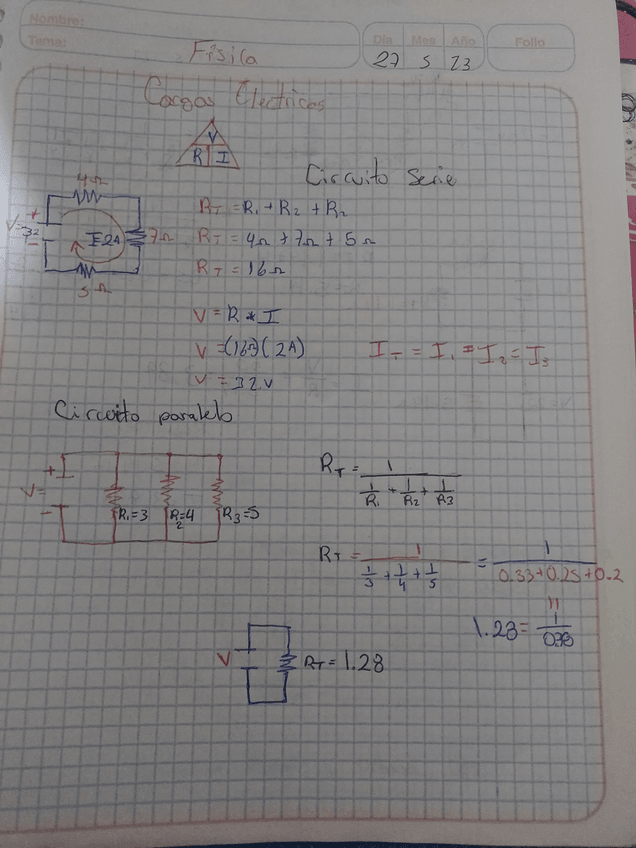 Nombre:
Tema: Física
Día Mes Año Folio
27 5 23
Cargas Electricas
V
R I
Circuito Serie
4Ω
V=32
+
-
I=2A
7Ω
5Ω
RT = R1 + R2 + R2
RT = 4Ω + 7Ω + 5Ω
RT = 16Ω
V = R * I
V = (16Ω)(2A)
IT = I1 = I2 = I3
V = 32V
Circuito paralelo
V=
+
-
R1=3
R2=4
R3=5
RT = 1 / (1/R1 + 1/R2 + 1/R3)
RT = 1 / (1/3 + 1/4 + 1/5) = 1 / (0.33+0.25+0.2)
=
1.28 = 1 / 0.78
V
RT = 1.28